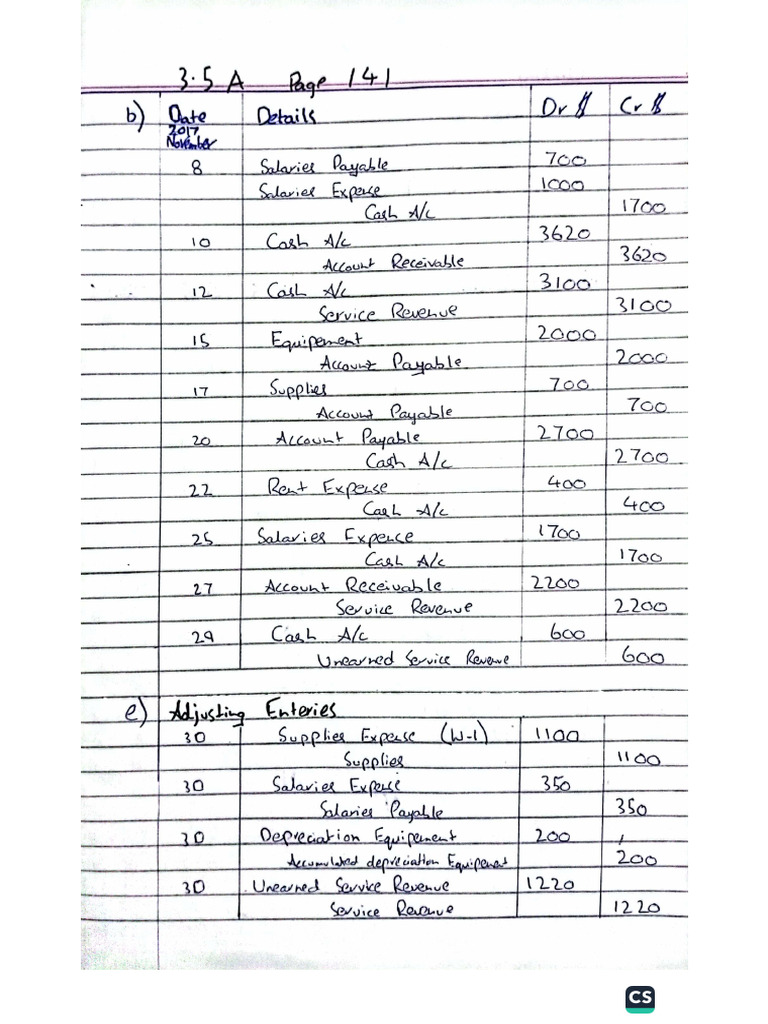 3.5 A Page 141
b) Date Details Dr $ Cr $
2017
November
8 Salaries Payable 700
Salaries Expense 1000
Cash A/c 1700
10 Cash A/c 3620
Account Receivable 3620
12 Cash A/c 3100
Service Revenue 3100
15 Equipement 2000
Account Payable 2000
17 Supplies 700
Account Payable 700
20 Account Payable 2700
Cash A/c 2700
22 Rent Expense 400
Cash A/c 400
25 Salaries Expence 1700
Cash A/c 1700
27 Account Receivable 2200
Service Revenue 2200
29 Cash A/c 600
Unearned Service Revenue 600
e) Adjusting Enteries
30 Supplies Expense (W-1) 1100
Supplies 1100
30 Salaries Expense 350
Salaries Payable 350
30 Depreciation Equipement 200
Accumulated depreciation Equipement 200
30 Unearned Service Revenue 1220
Service Revenue 1220
CS